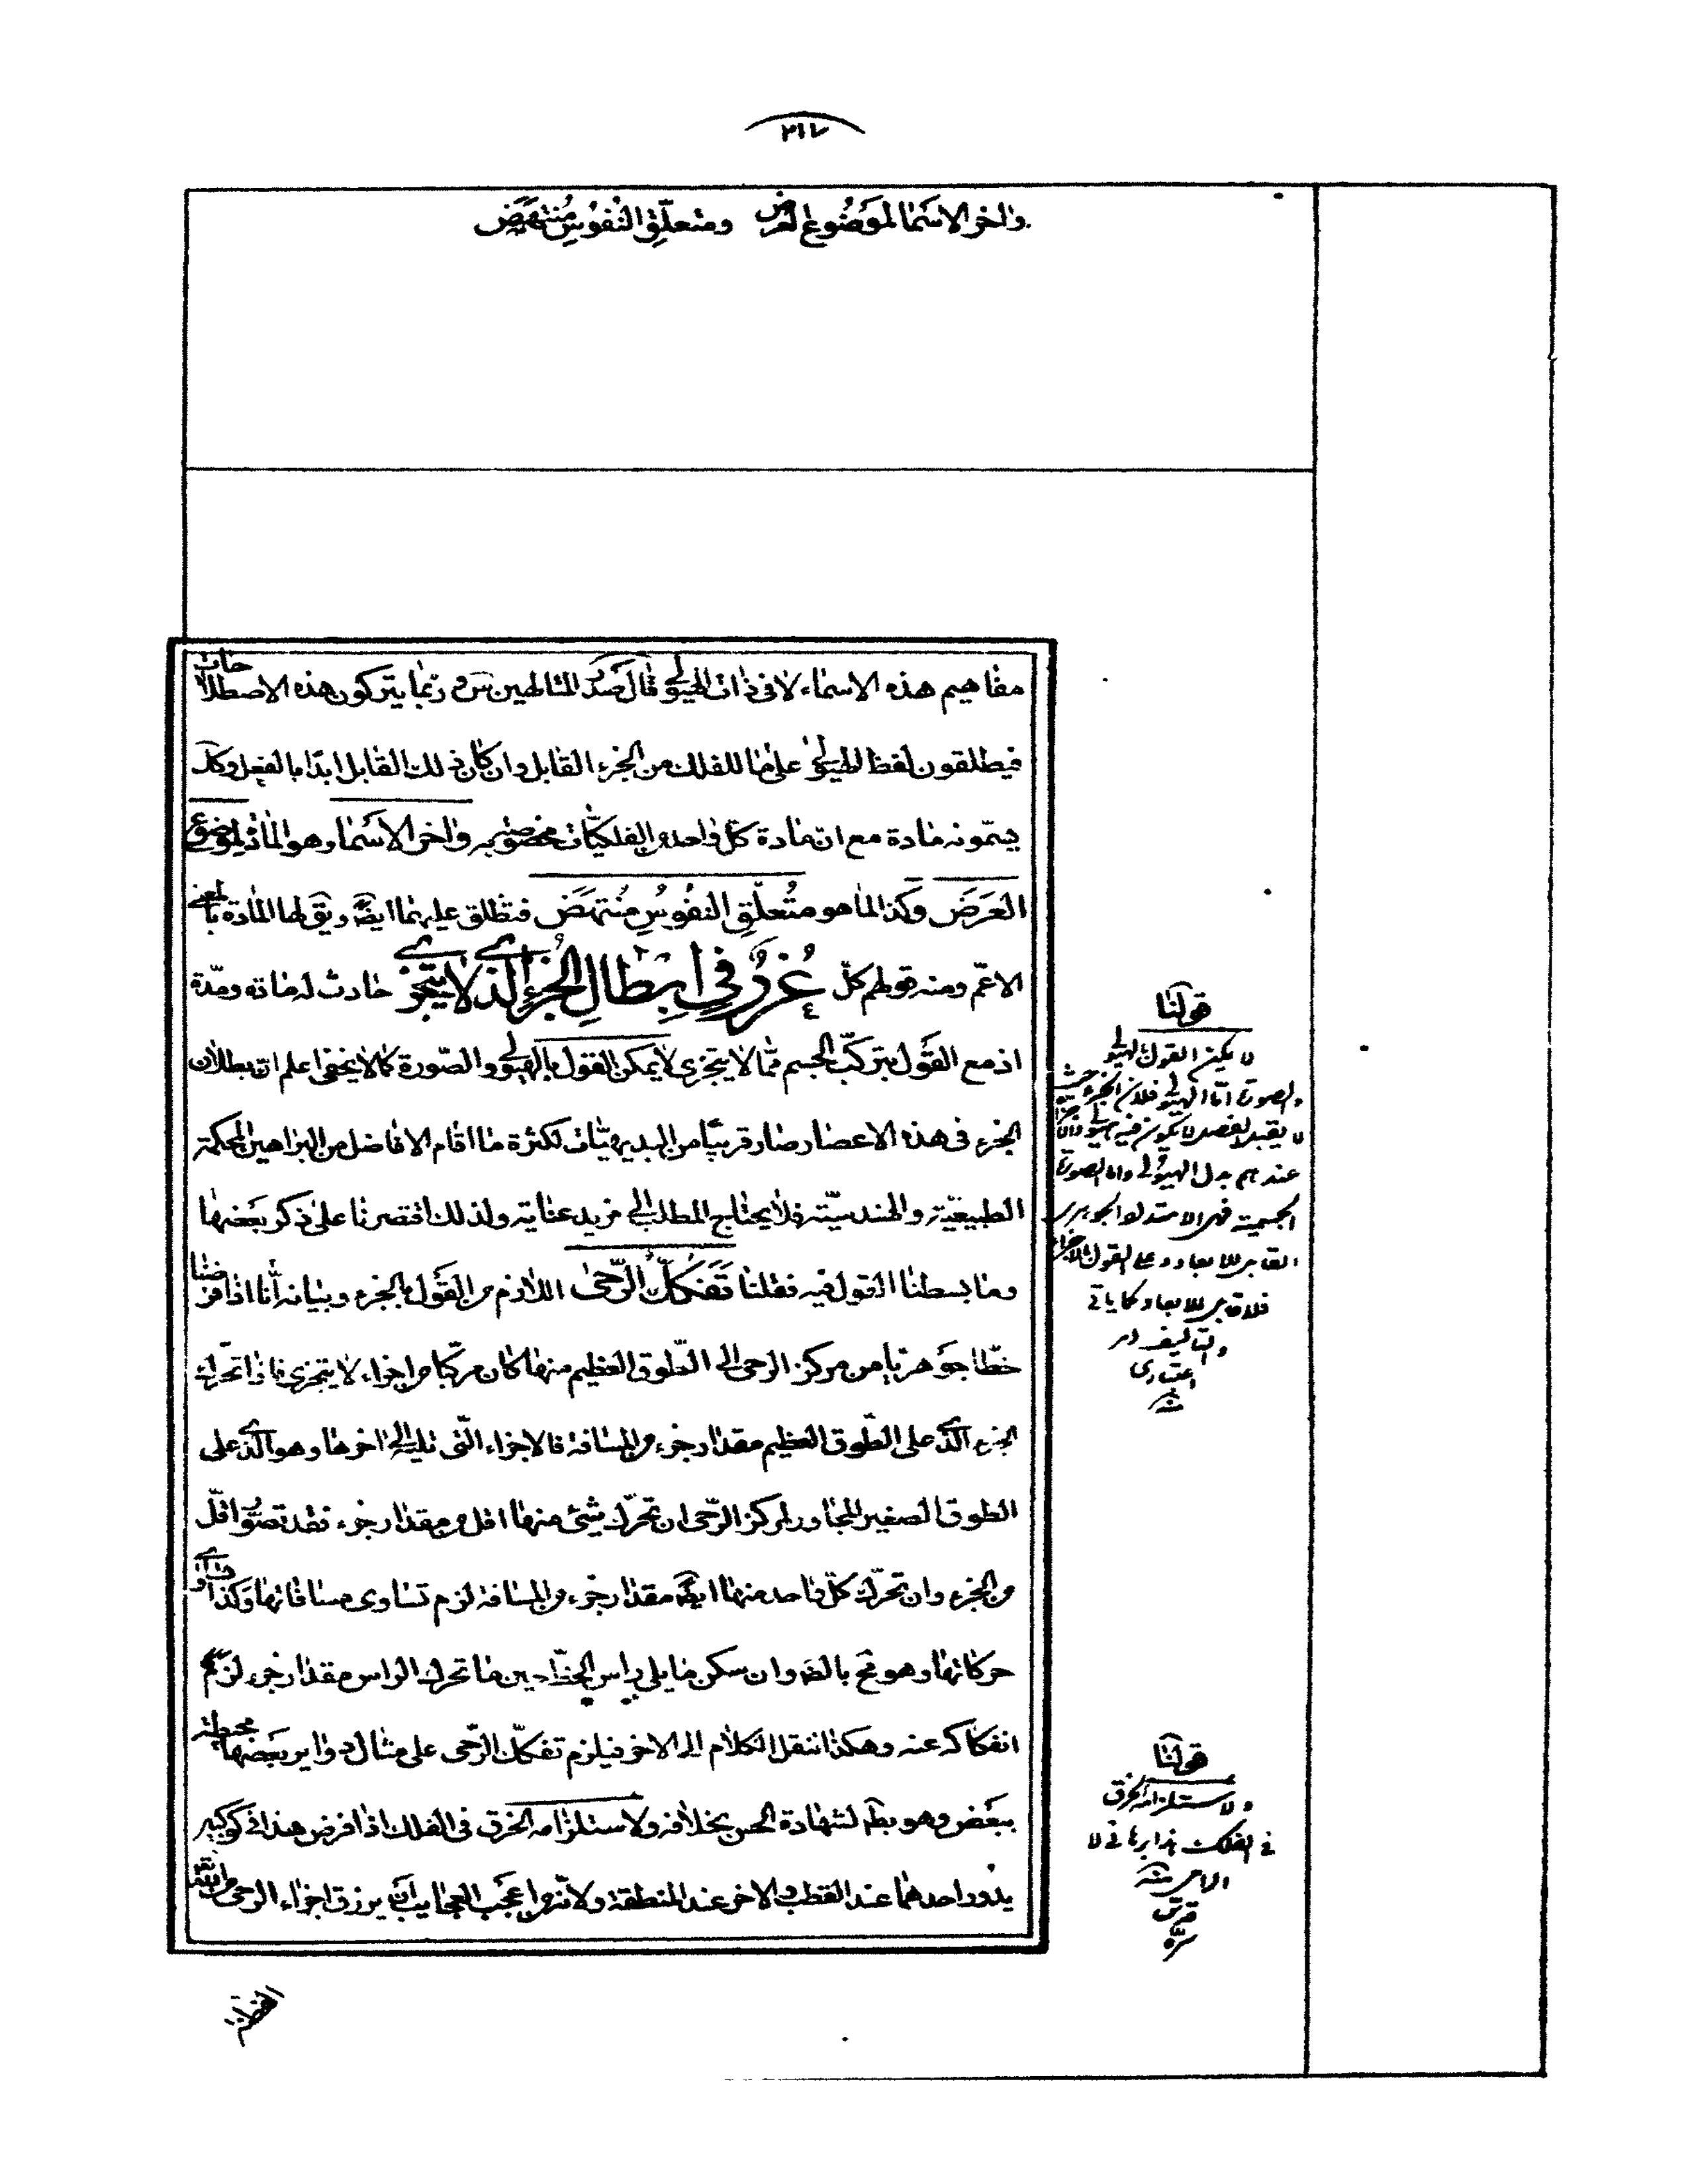 ٢١٧
واخر الاسما لموضوع العرض ومتعلّق النفوس منتهض
مفاهيم هذه الاسماء لا فى ذات الهيولى قال صدر المتالهين س وربّما يتركون هذه الاصطلاحات
فيطلقون لفظ الهيولى على ما للفلك من الجزء القابل وان كان ذلك القابل ابدا بالفعل وكك
يسمّونه مادة مع ان مادة كل واحدة من الفلكيّات مخصوصة به واخر الاسما وهو المادّة لموضوع
العرض وكذا لما هو متعلّق النفوس منتهض فتطلق عليهما ايضا ويق لها المادة بالمعنى
الاعمّ ومنه قولهم كلّ حادث له مادّة ومدّة
غرر فى ابطال الجزء الذى لا يتجزى
اذ مع القول بتركّب الجسم ممّا لا يتجزى لا يمكن القول بالهيولى والصّورة كما لا يخفى اعلم ان بطلان
الجزء فى هذه الاعصار صار قريبا من البديهيّات لكثرة ما اقام الافاضل من البراهين المحكمة
الطبيعيّة والهندسيّة فلا يحتاج المطلب الى مزيد عناية ولذلك اقتصرنا على ذكر بعضها
وما بسطنا القول فيه فقلنا تفكك الرّحى اللازم من القول بالجزء وبيانه أنّا اذا فرضنا
خطّا جوهريّا من مركز الرحى الى الطّوق العظيم منها كان مركّبا من اجزاء لا يتجزى فاذا تحرّك
الجزء الّذى على الطّوق العظيم مقدار جزء من المسافة فالاجزاء الّتى تليه الى اخرها وهو الّذى على
الطوق الصغير المجاور لمركز الرّحى ان تحرّك شيئ منها اقل من مقدار جزء فقد تصوّر اقلّ
من الجزء وان تحرّك كلّ واحد منها ايضا مقدار جزء من المسافة لزم تساوى مسافاتها وكذا تساوى
حركاتها وهو مح بالضه وان سكن ما يلى راس الخطّ حين ما تحرك الراس مقدار جزء لزم
انفكاكه عنه وهكذا ننقل الكلام الى الاخر فيلزم تفكّك الرّحى على مثال دواير بعضها محيطة
ببعض وهو بط لشهادة الحس بخلافه ولاستلزامه الخرق فى الفلك اذا فرض هذا فى كوكبين
يدور احدهما عند القطب والاخر عند المنطقة ولانّه من اعجب العجايب ان يرزق اجزاء الرحى من
الفطن
قولنا
لا يمكن القول بالهيولى
والصورة امّا الهيولى فلان الجزء حيث
لا يقبل الفصل لا يكون فيه هيولى
عندهم بدل الهيولى واما الصورة
الجسمية فهى الامتداد الجوهرى
القابل للابعاد وعلى القول بالاجزاء
فلا قابل للابعاد كما ياتى
والتاليف امر
اعتبارى
منه
قولنا
ولاستلزامه الخرق
فى الفلك
الامر منه
قدس
سرّه